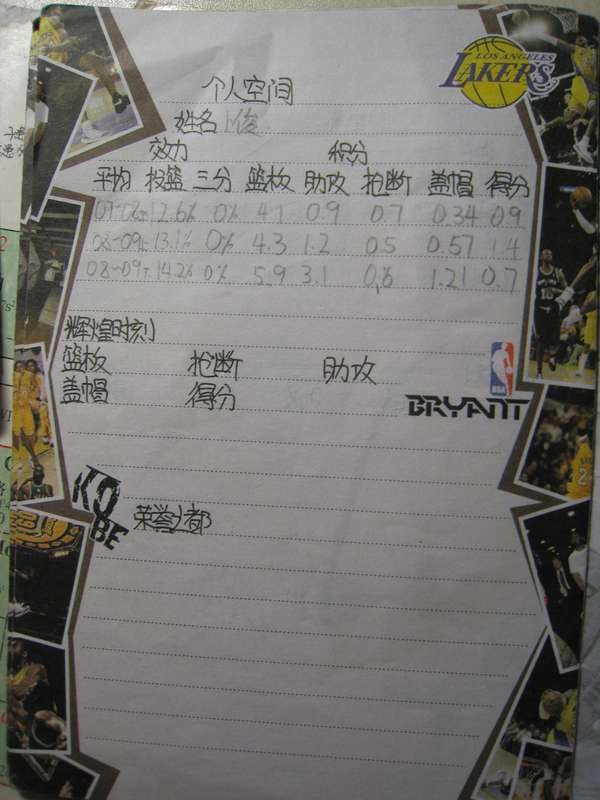 LOS ANGELES
LAKERS
个人空间
姓名 俊
效力 积分
平均 投篮 三分 篮板 助攻 抢断 盖帽 得分
12.6% 0% 4.1 0.9 0.7 0.34 0.9
08-09 13.1% 0% 4.3 1.2 0.5 0.57 1.4
08-09 14.2% 0% 5.9 3.1 0.6 1.21 0.7
辉煌时刻
篮板 抢断 助攻
盖帽 得分
NBA
BRYANT
KOBE
荣誉之都